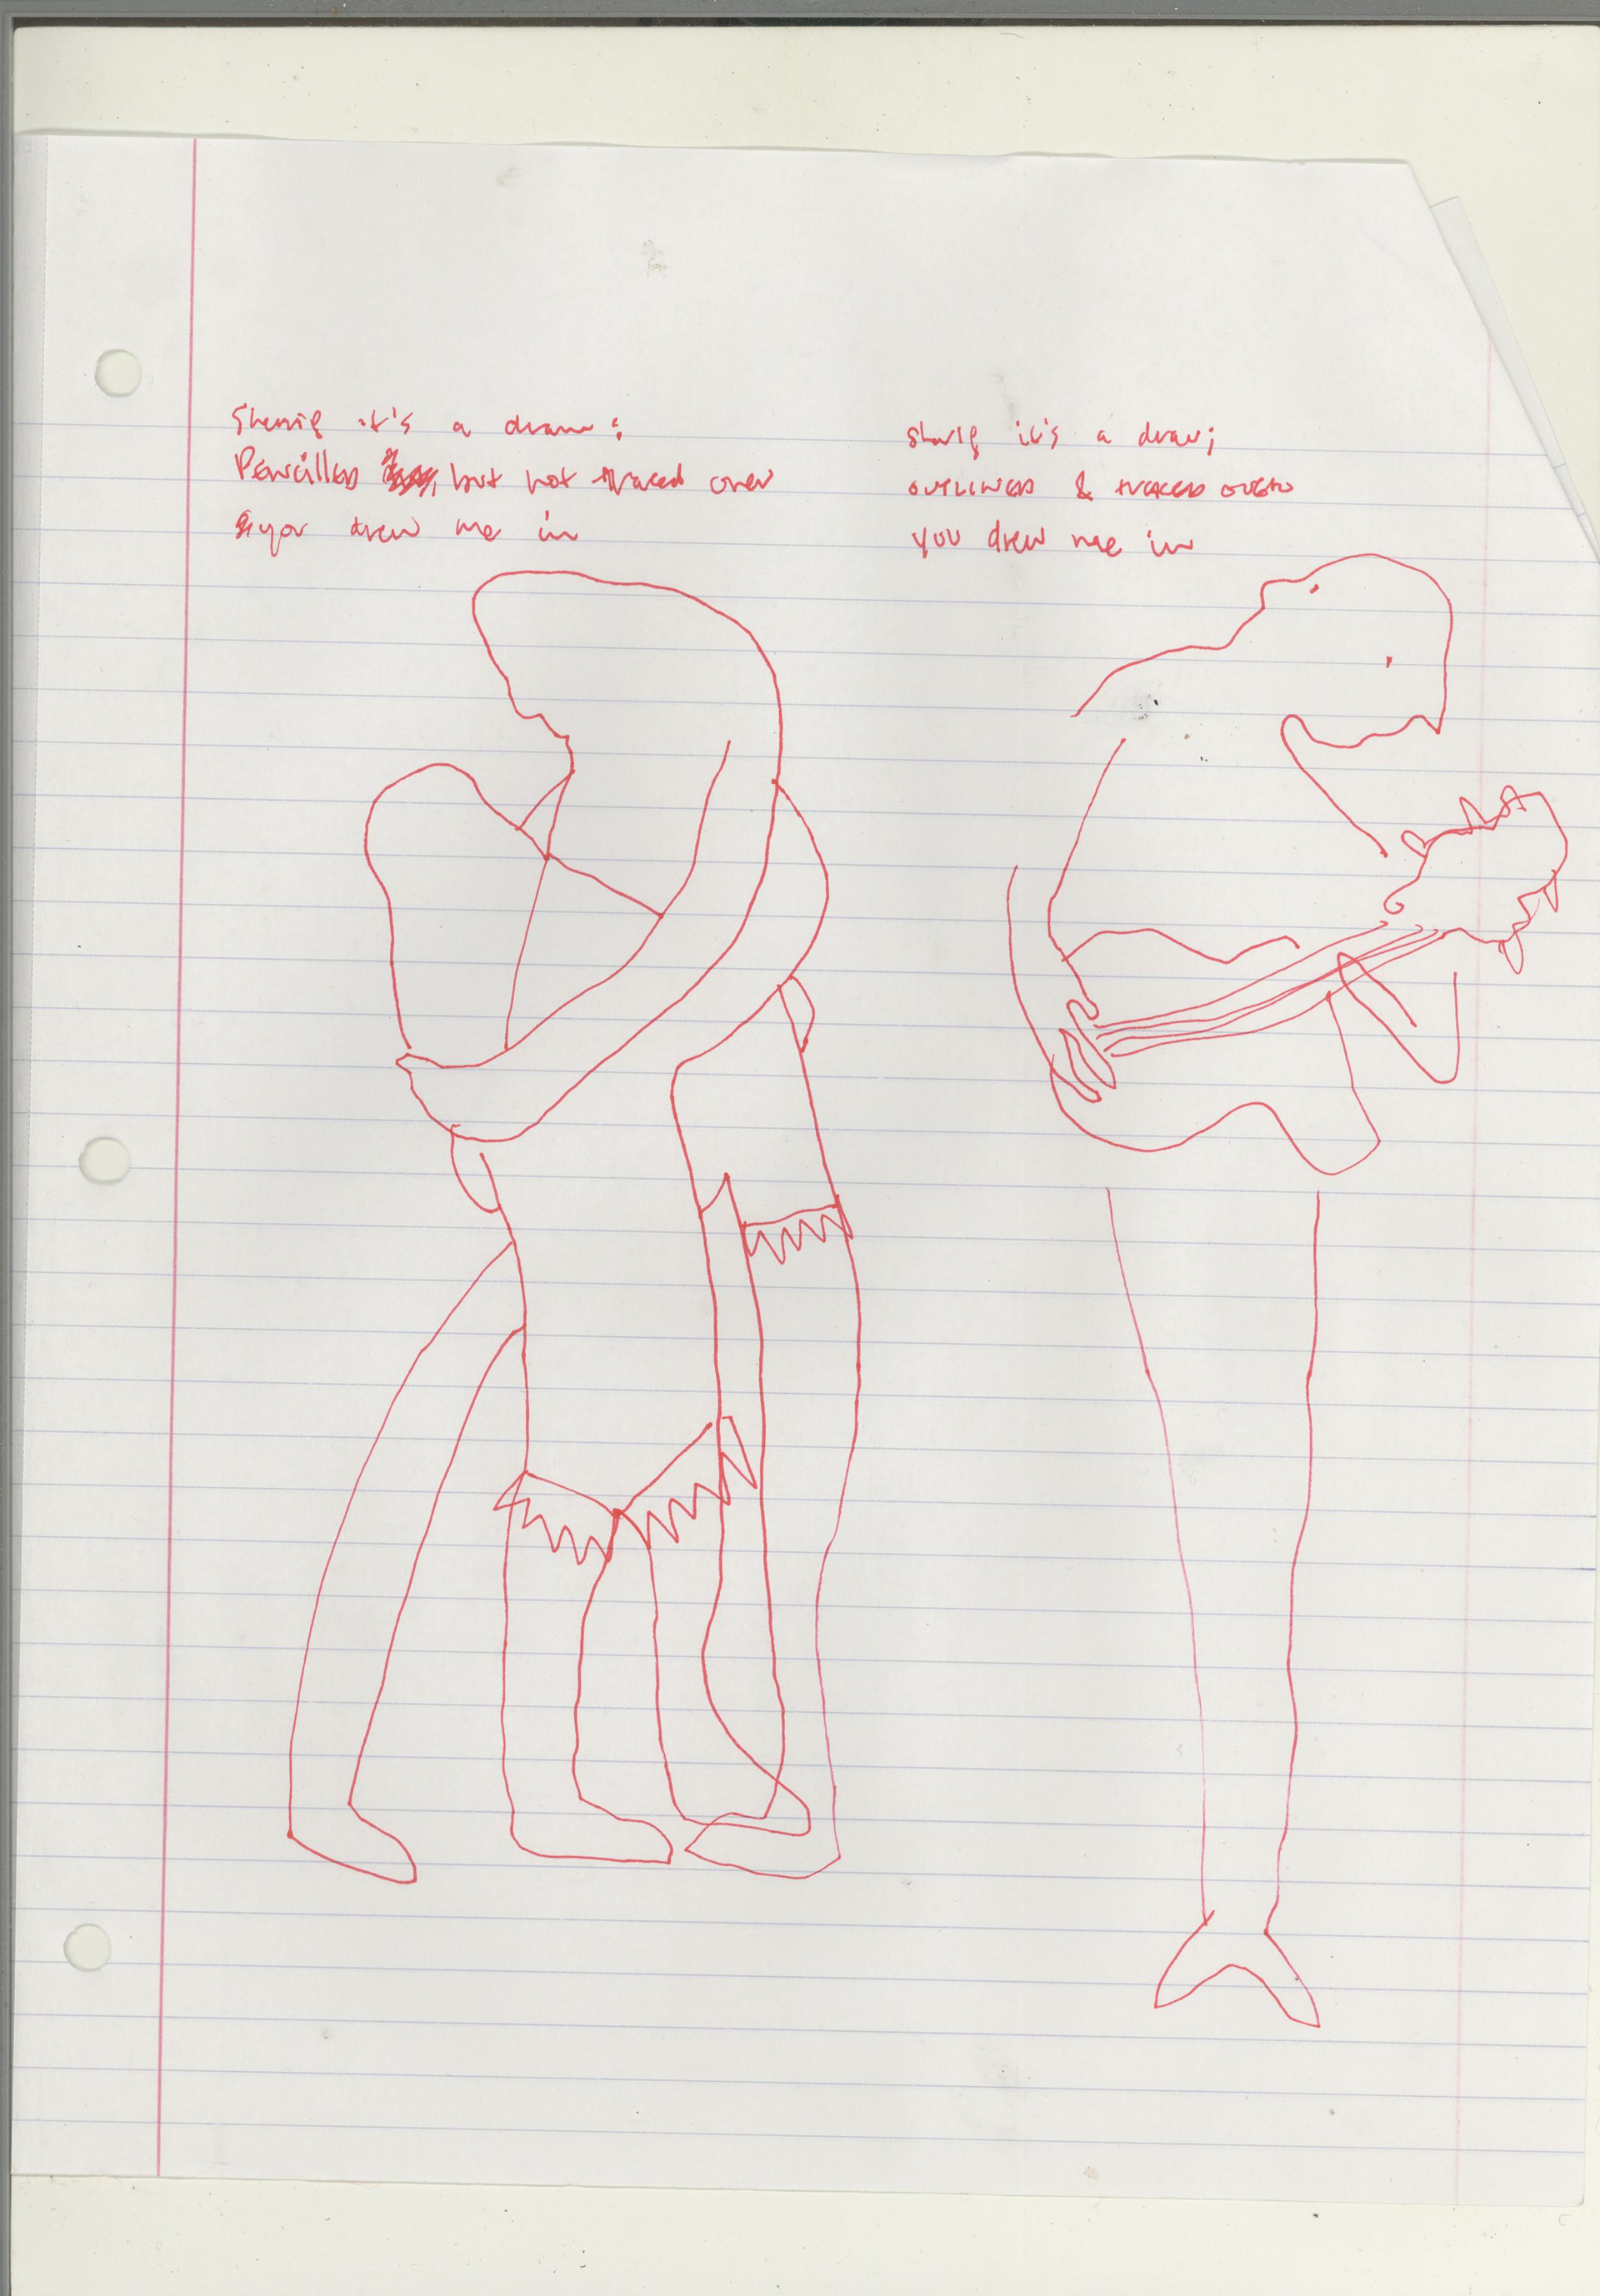 it's a draw:
Pencilled but not traced over
you drew me in
it's a draw;
OUTLINED & TRACED OVER
you drew me in